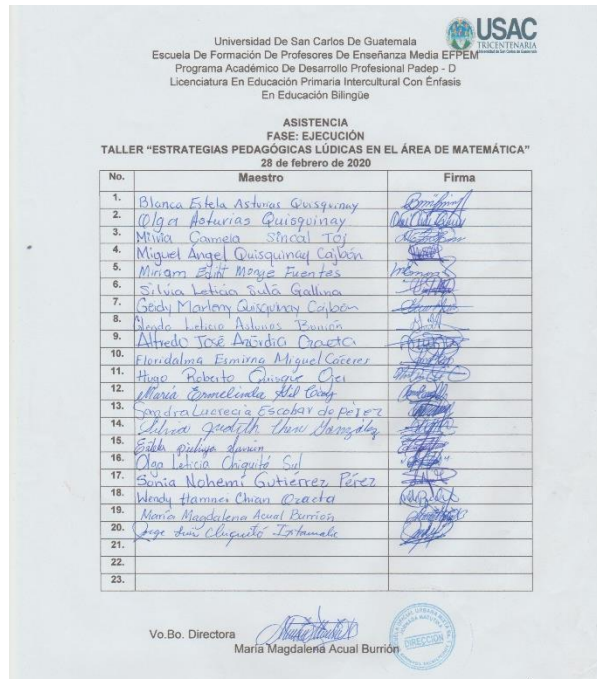 USAC
TRICENTENARIA
Universidad De San Carlos De Guatemala
Escuela De Formación De Profesores De Enseñanza Media EFPEM
Programa Académico De Desarrollo Profesional Padep - D
Licenciatura En Educación Primaria Intercultural Con Énfasis
En Educación Bilingüe
ASISTENCIA
FASE: EJECUCIÓN
TALLER “ESTRATEGIAS PEDAGÓGICAS LÚDICAS EN EL ÁREA DE MATEMÁTICA”
28 de febrero de 2020
No. Maestro Firma
1. Blanca Estela Asturias Quisquinay
2. Olga Asturias Quisquinay
3. Milvia Carmela Sincal Toj
4. Miguel Ángel Quisquinay Cajbón
5. Miriam Edit Monge Fuentes
6. Silvia Leticia Sutá Gallina
7. Geidy Marleny Quisquinay Cajbón
8. Leticia Asturias Burrión
9. Alfredo José Azurdia
10. Floridalma Esmirna Miguel Cáceres
11. Hugo Roberto Quisque
12. María Ermelinda
13. Sandra Lucrecia Escobar de Pérez
14. Silvia Judith González
15.
16. Olga Leticia Chiquitó Sul
17. Sonia Nohemí Gutiérrez Pérez
18. Wendy
19. María Magdalena Acual Burrión
20. Jorge Luis Chiquitó
21.
22.
23.
Vo.Bo. Directora
María Magdalena Acual Burrión
DIRECCIÓN